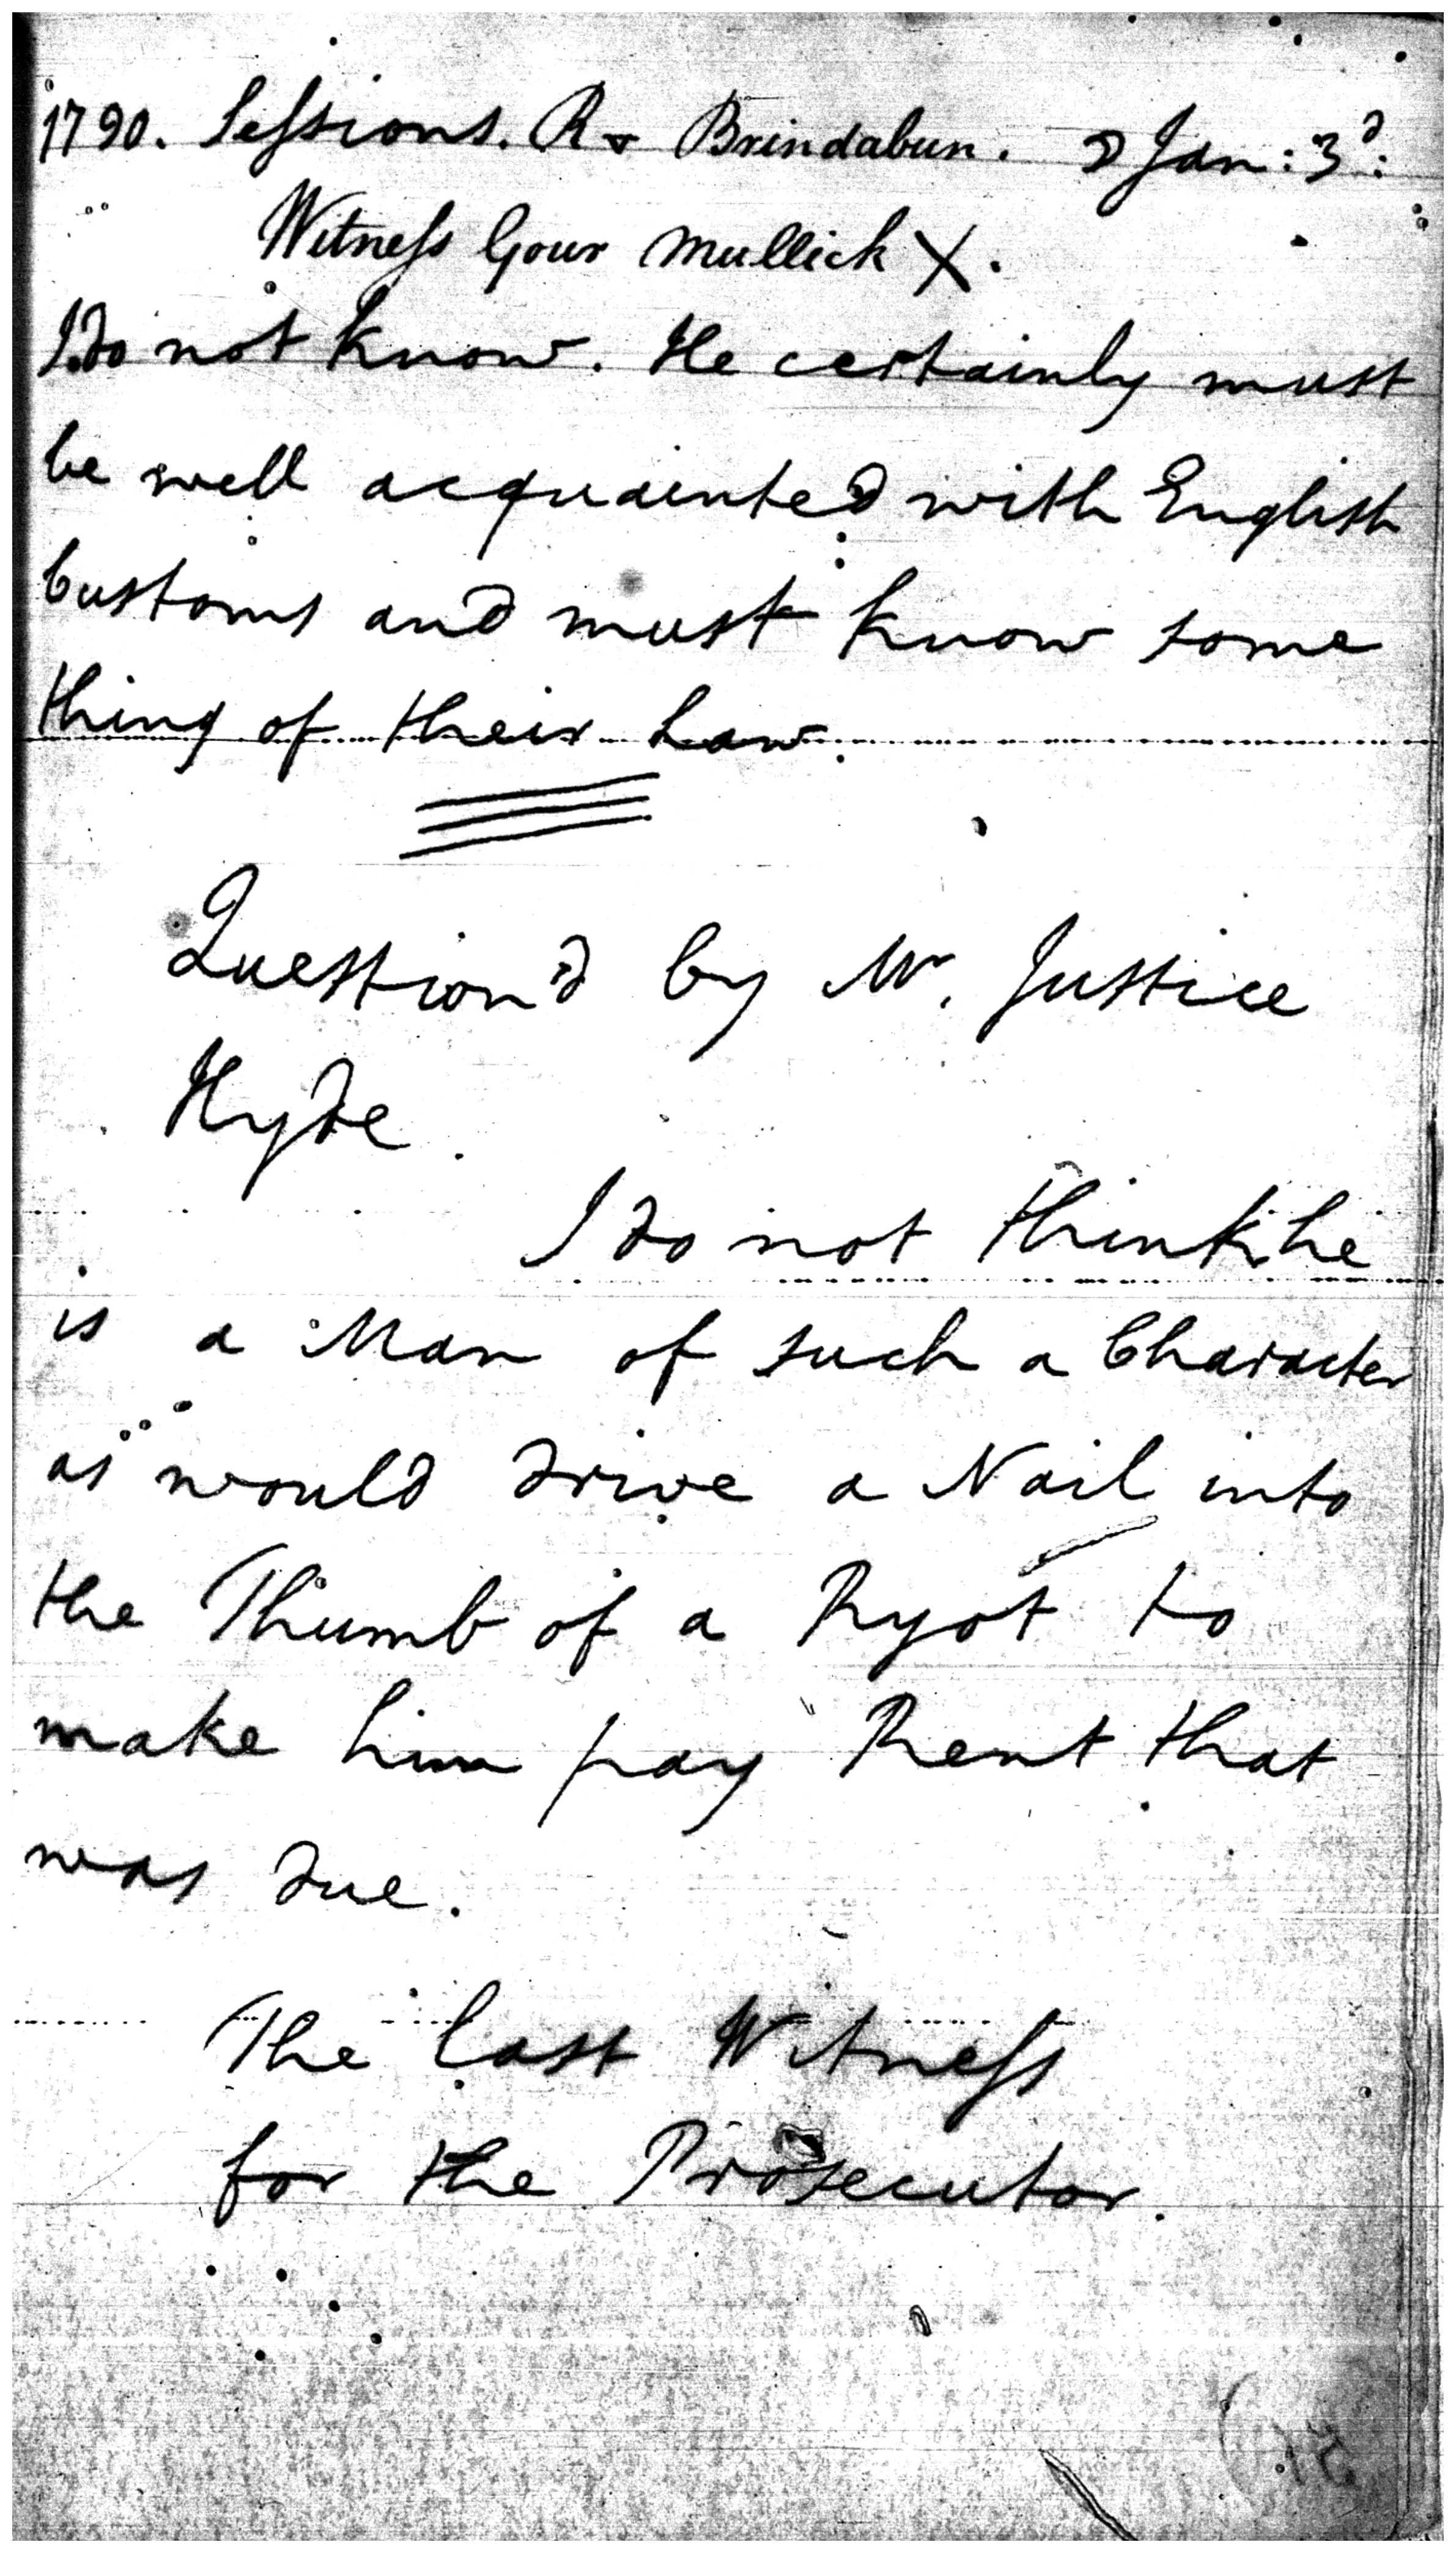 1790. Sessions. R v Brindabun. D Jan: 3d:
Witness Gour Mullick X.
I do not know. He certainly must
be well acquainted with English
Customs and must know some
thing of their Law.
Question'd by Mr. Justice
Hyde.
I do not think he
is a Man of such a Character
as would drive a Nail into
the Thumb of a Ryot to
make him pay Rent that
was due.
The last Witness
for the Prosecutor.